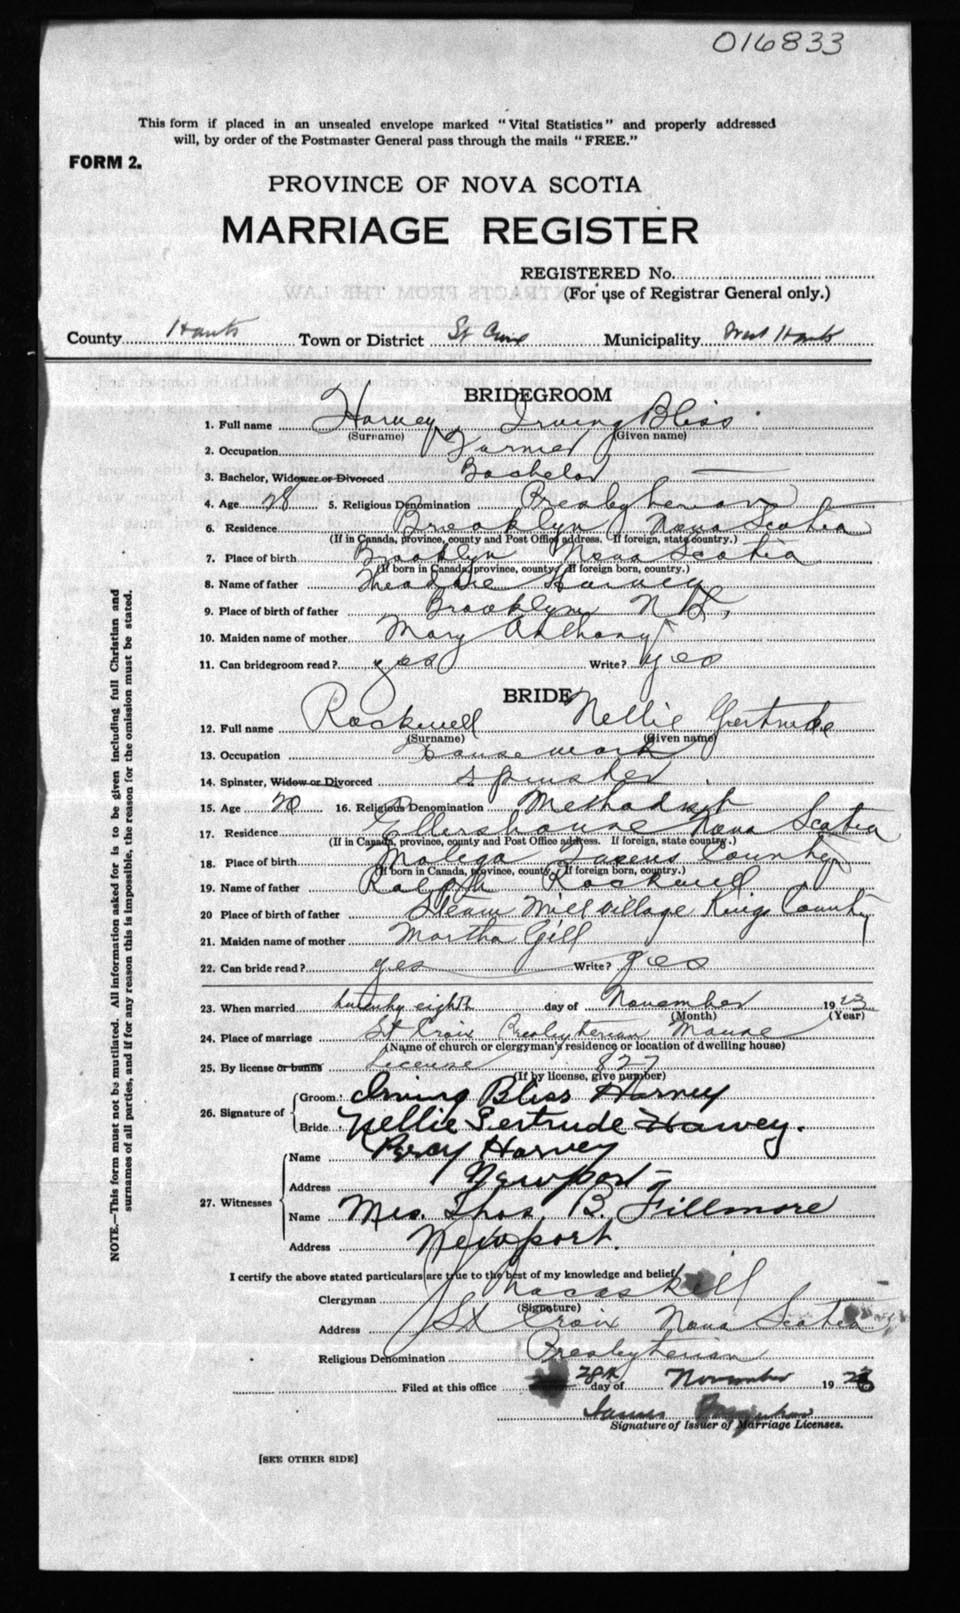 016833
This form if placed in an unsealed envelope marked "Vital Statistics" and properly addressed
will, by order of the Postmaster General pass through the mails "FREE."
FORM 2.
PROVINCE OF NOVA SCOTIA
MARRIAGE REGISTER
REGISTERED No.
(For use of Registrar General only.)
County Hants Town or District St Croix Municipality West Hants
BRIDEGROOM
1. Full name Harvey Irving Bliss
(Surname) (Given name)
2. Occupation Farmer
3. Bachelor, Widower or Divorced Bachelor
4. Age 28 5. Religious Denomination Presbyterian
6. Residence Brooklyn Nova Scotia
(If in Canada, province, county and Post Office address. If foreign, state country.)
7. Place of birth Brooklyn Nova Scotia
(If born in Canada, province, county. If foreign born, country.)
8. Name of father Harvey
9. Place of birth of father Brooklyn N S,
10. Maiden name of mother Mary Anthony
11. Can bridegroom read? yes Write? yes
BRIDE
12. Full name Rockwell Nellie Gertrude
(Surname) (Given name)
13. Occupation House work
14. Spinster, Widow or Divorced Spinster
15. Age 20 16. Religious Denomination Methodist
17. Residence Ellershouse Nova Scotia
(If in Canada, province, county and Post Office address. If foreign, state country.)
18. Place of birth Molega Queens County
(If born in Canada, province, county. If foreign born, country.)
19. Name of father Ralph Rockwell
20 Place of birth of father Steam Mill Village Kings County
21. Maiden name of mother Martha Gill
22. Can bride read? yes Write? yes
23. When married twenty eighth day of November 1923
(Month) (Year)
24. Place of marriage St Croix Presbyterian Manse
(Name of church or clergyman's residence or location of dwelling house)
25. By license or banns License 827
(If by license, give number)
26. Signature of Groom: Irving Bliss Harvey
Bride Nellie Gertrude Harvey.
27. Witnesses Name Percy Harvey
Address Newport
Name Mrs. Thos B. Fillmore
Address Newport.
I certify the above stated particulars are true to the best of my knowledge and belief
Clergyman Macaskill
(Signature)
Address St Croix Nova Scotia
Religious Denomination Presbyterian
Filed at this office 28th day of November 192
James
Signature of Issuer of Marriage Licenses.
[SEE OTHER SIDE]
NOTE.—This form must not be mutilated. All information asked for is to be given including full Christian and
surnames of all parties, and if for any reason this is impossible, the reason for the omission must be stated.